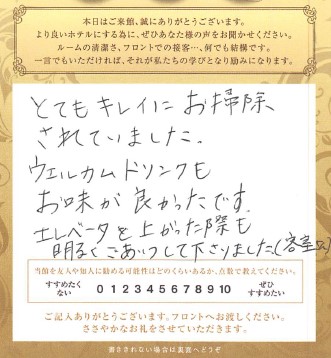 本日はご来館、誠にありがとうございます。
より良いホテルにする為に、ぜひあなた様の声をお聞かせください。
ルームの清潔さ、フロントでの接客…、何でも結構です。
一言でもいただければ、それが私たちの学びとなり励みになります。
とてもキレイにお掃除
されていました。
ウェルカムドリンクも
お味が良かったです。
エレベータを上がった際も
明るくごあいさつして下さりました(客室
当館を友人や知人に勧める可能性はどのくらいあるか、点数で教えてください。
すすめたくない 0 1 2 3 4 5 6 7 8 9 10 ぜひすすめたい
ご記入ありがとうございます。フロントへお渡しください。
ささやかなお礼をさせていただきます。
書ききれない場合は裏面へどうぞ